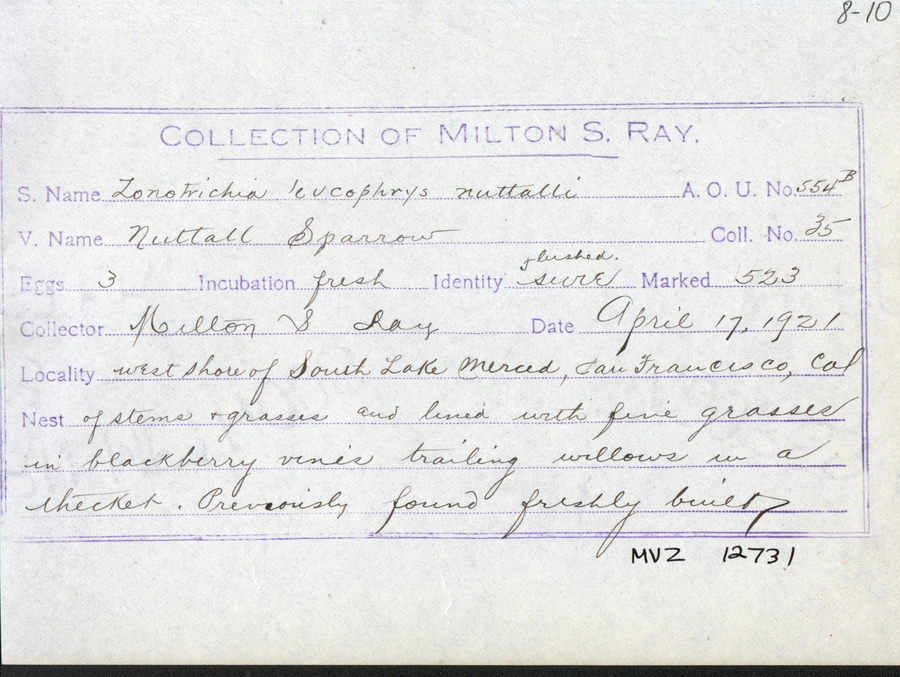 8-10
COLLECTION OF MILTON S. RAY.
S. Name Zonotrichia leucophrys nuttalli A. O. U. No. 554B
V. Name Nuttall Sparrow Coll. No. 35
flushed.
Eggs 3 Incubation fresh Identity sure Marked 523
Collector Milton S Ray Date April 17, 1921
Locality west shore of South Lake Merced, San Francisco, Cal
Nest of stems + grasses and lined with fine grasses
in blackberry vines trailing willows in a
thicket. Previously found freshly built
MVZ 12731